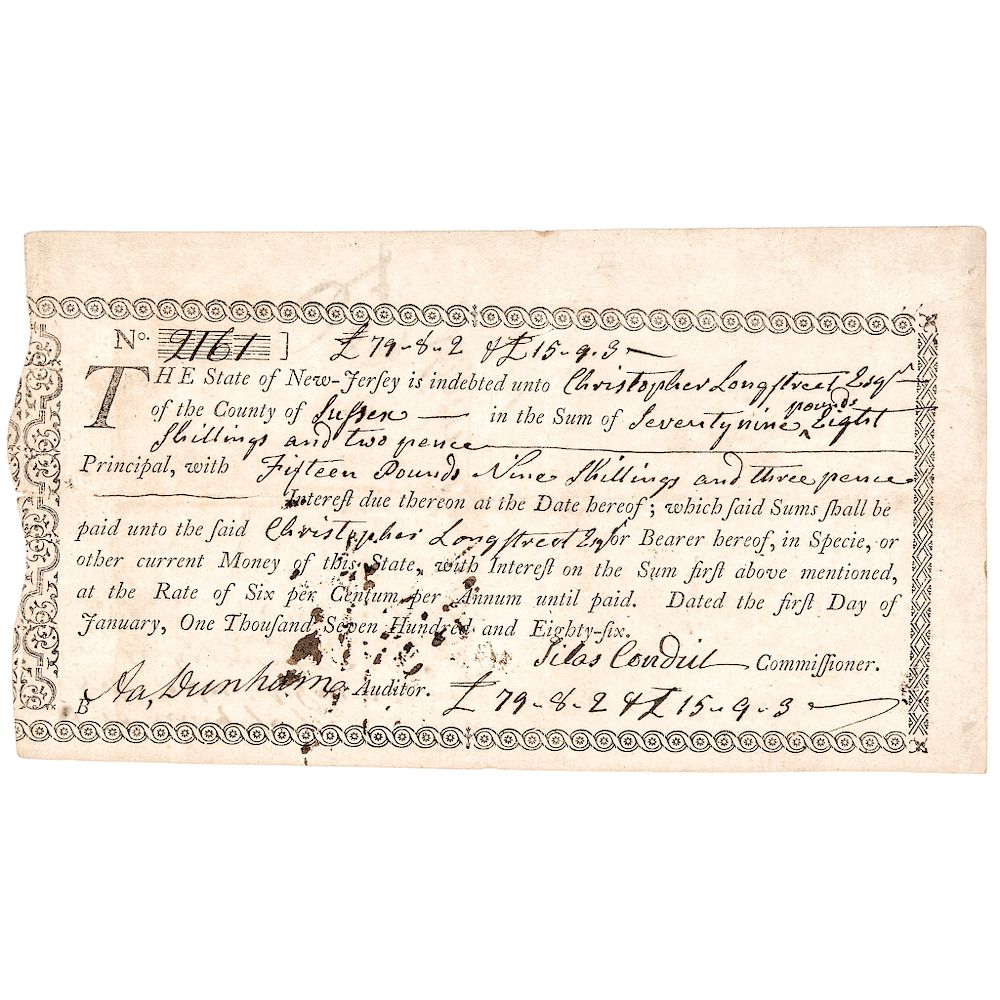 No. 2161 ] £ 79-8-2 & £ 15-9-3
THE State of New-Jersey is indebted unto Christopher Longstreet Esqr
of the County of Sussex in the Sum of Seventy nine pounds Eight
Shillings and two pence
Principal, with Fifteen Pounds Nine Shillings and three pence
Intereſt due thereon at the Date hereof; which ſaid Sums ſhall be
paid unto the ſaid Christopher Longstreet Esqr or Bearer hereof, in Specie, or
other current Money of this State, with Intereſt on the Sum firſt above mentioned,
at the Rate of Six per Centum per Annum until paid. Dated the firſt Day of
January, One Thouſand Seven Hundred and Eighty-ſix.
Silas Condict Commiſſioner.
B Aa, Dunham Auditor. £ 79-8-2 & £ 15-9-3